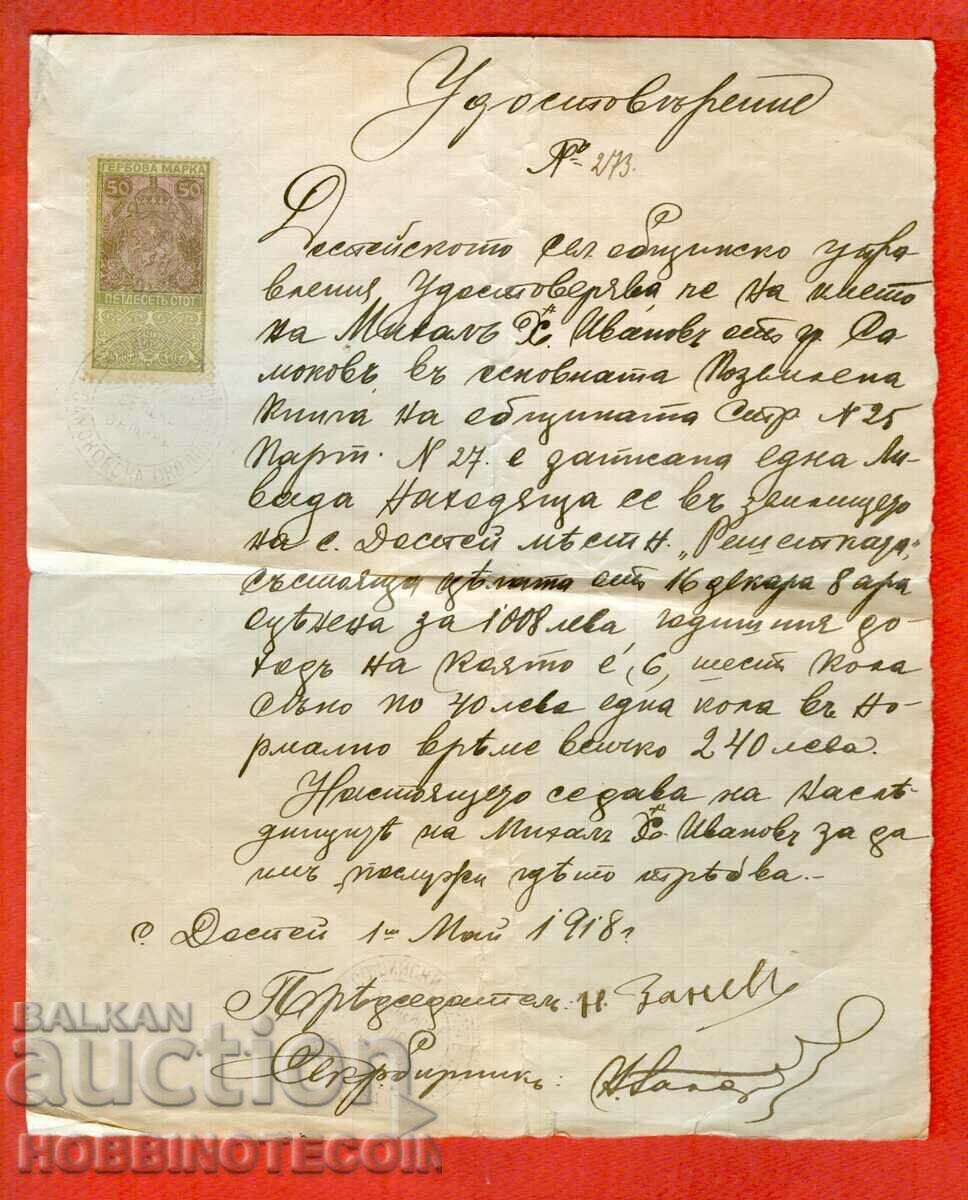 Удостовѣрение
№ 273.
ГЕРБОВА МАРКА
50 50
ПЕТДЕСЕТЬ СТОТ.
Доспейското сел. общинско упра
вления удостоверява че на името
на Михалъ Х. Ивановъ отъ гр. Са
моковъ въ основната
книга на общината стр N 25
парт. N 27. е записана една ли
вада находяща се въ землището
на с. Доспей мѣстн.
състояща цѣлата отъ 16 декара 8 ара
оцѣнена за 1008 лева годишния до-
ходъ на която е (6) шест кола
сѣно по 40 лева една кола въ но-
рмално врѣме всичко 240 лева.
Настоящето се дава на наслѣ-
дницитѣ на Михалъ Х. Ивановъ за да
имъ послужи гдѣто трѣбва.-
с. Доспей 1ий Май 1918 г
Прѣдседателъ: Н. Заневъ
Секр. Бирникъ:
BALKAN
auction
HOBBINOTECOIN